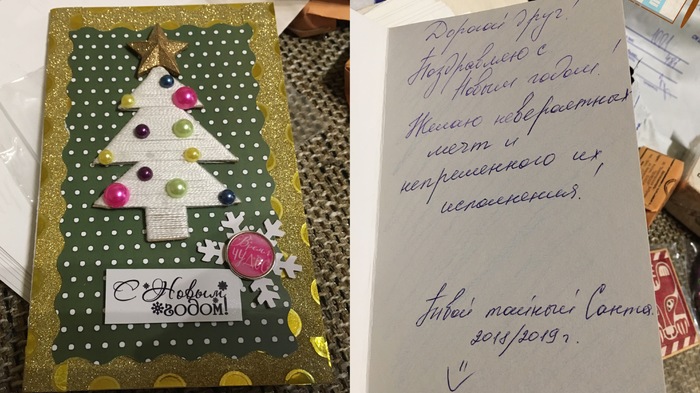 Время
ЧУДЕС
С Новым
годом!
Дорогой друг!
Поздравляю с
Новым годом!
Желаю невероятных
мечт и
непременного их
исполнения!
Твой тайный Санта.
2018/2019 г.